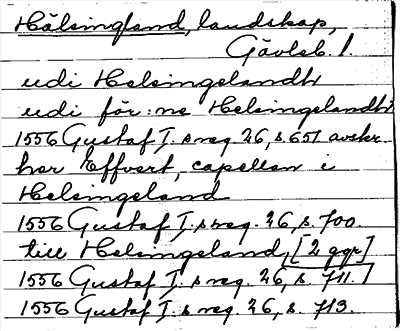 Hälsingland, landskap,
Gävleb. l.
udi Helsingelandh
udi för:ne Helsingelandh
1556 Gustaf I:s reg. 26, s. 651 avskr.
her Effvert, capellen i
Helsingeland
1556 Gustaf I:s reg. 26, s. 700.
till Helsingeland, [2 ggr]
1556 Gustaf I:s reg. 26, s. 711.
1556 Gustaf I:s reg. 26, s. 713.